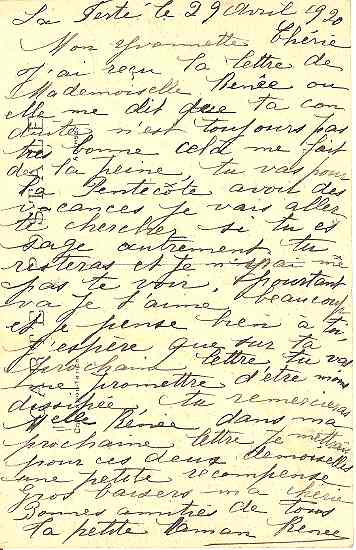 La Ferté le 29 Avril 1920
Mon Yvonnette Chérie
J'ai reçu ta lettre de
Mademoiselle Renée ou
elle me dit que ta con
duite n'est toujours pas
très bonne celà me fait
de la peine, tu vas pour
la Pentecôte avoir des
vacances je vais aller
te chercher si tu es
sage autrement tu
resteras et je n'irai même
pas te voir, pourtant
va je t'aime beaucoup
et je pense bien à toi,
J'espère que sur ta
prochaine lettre tu vas
me promettre d'être moins
dissipée, tu remercieras
Melle Renée, dans ma
prochaine lettre je mettrais
pour ces deux demoiselles
une petite recompense
Gros baisers ma chérie
Bonnes amitiés de tous
Ta petite Maman Renée